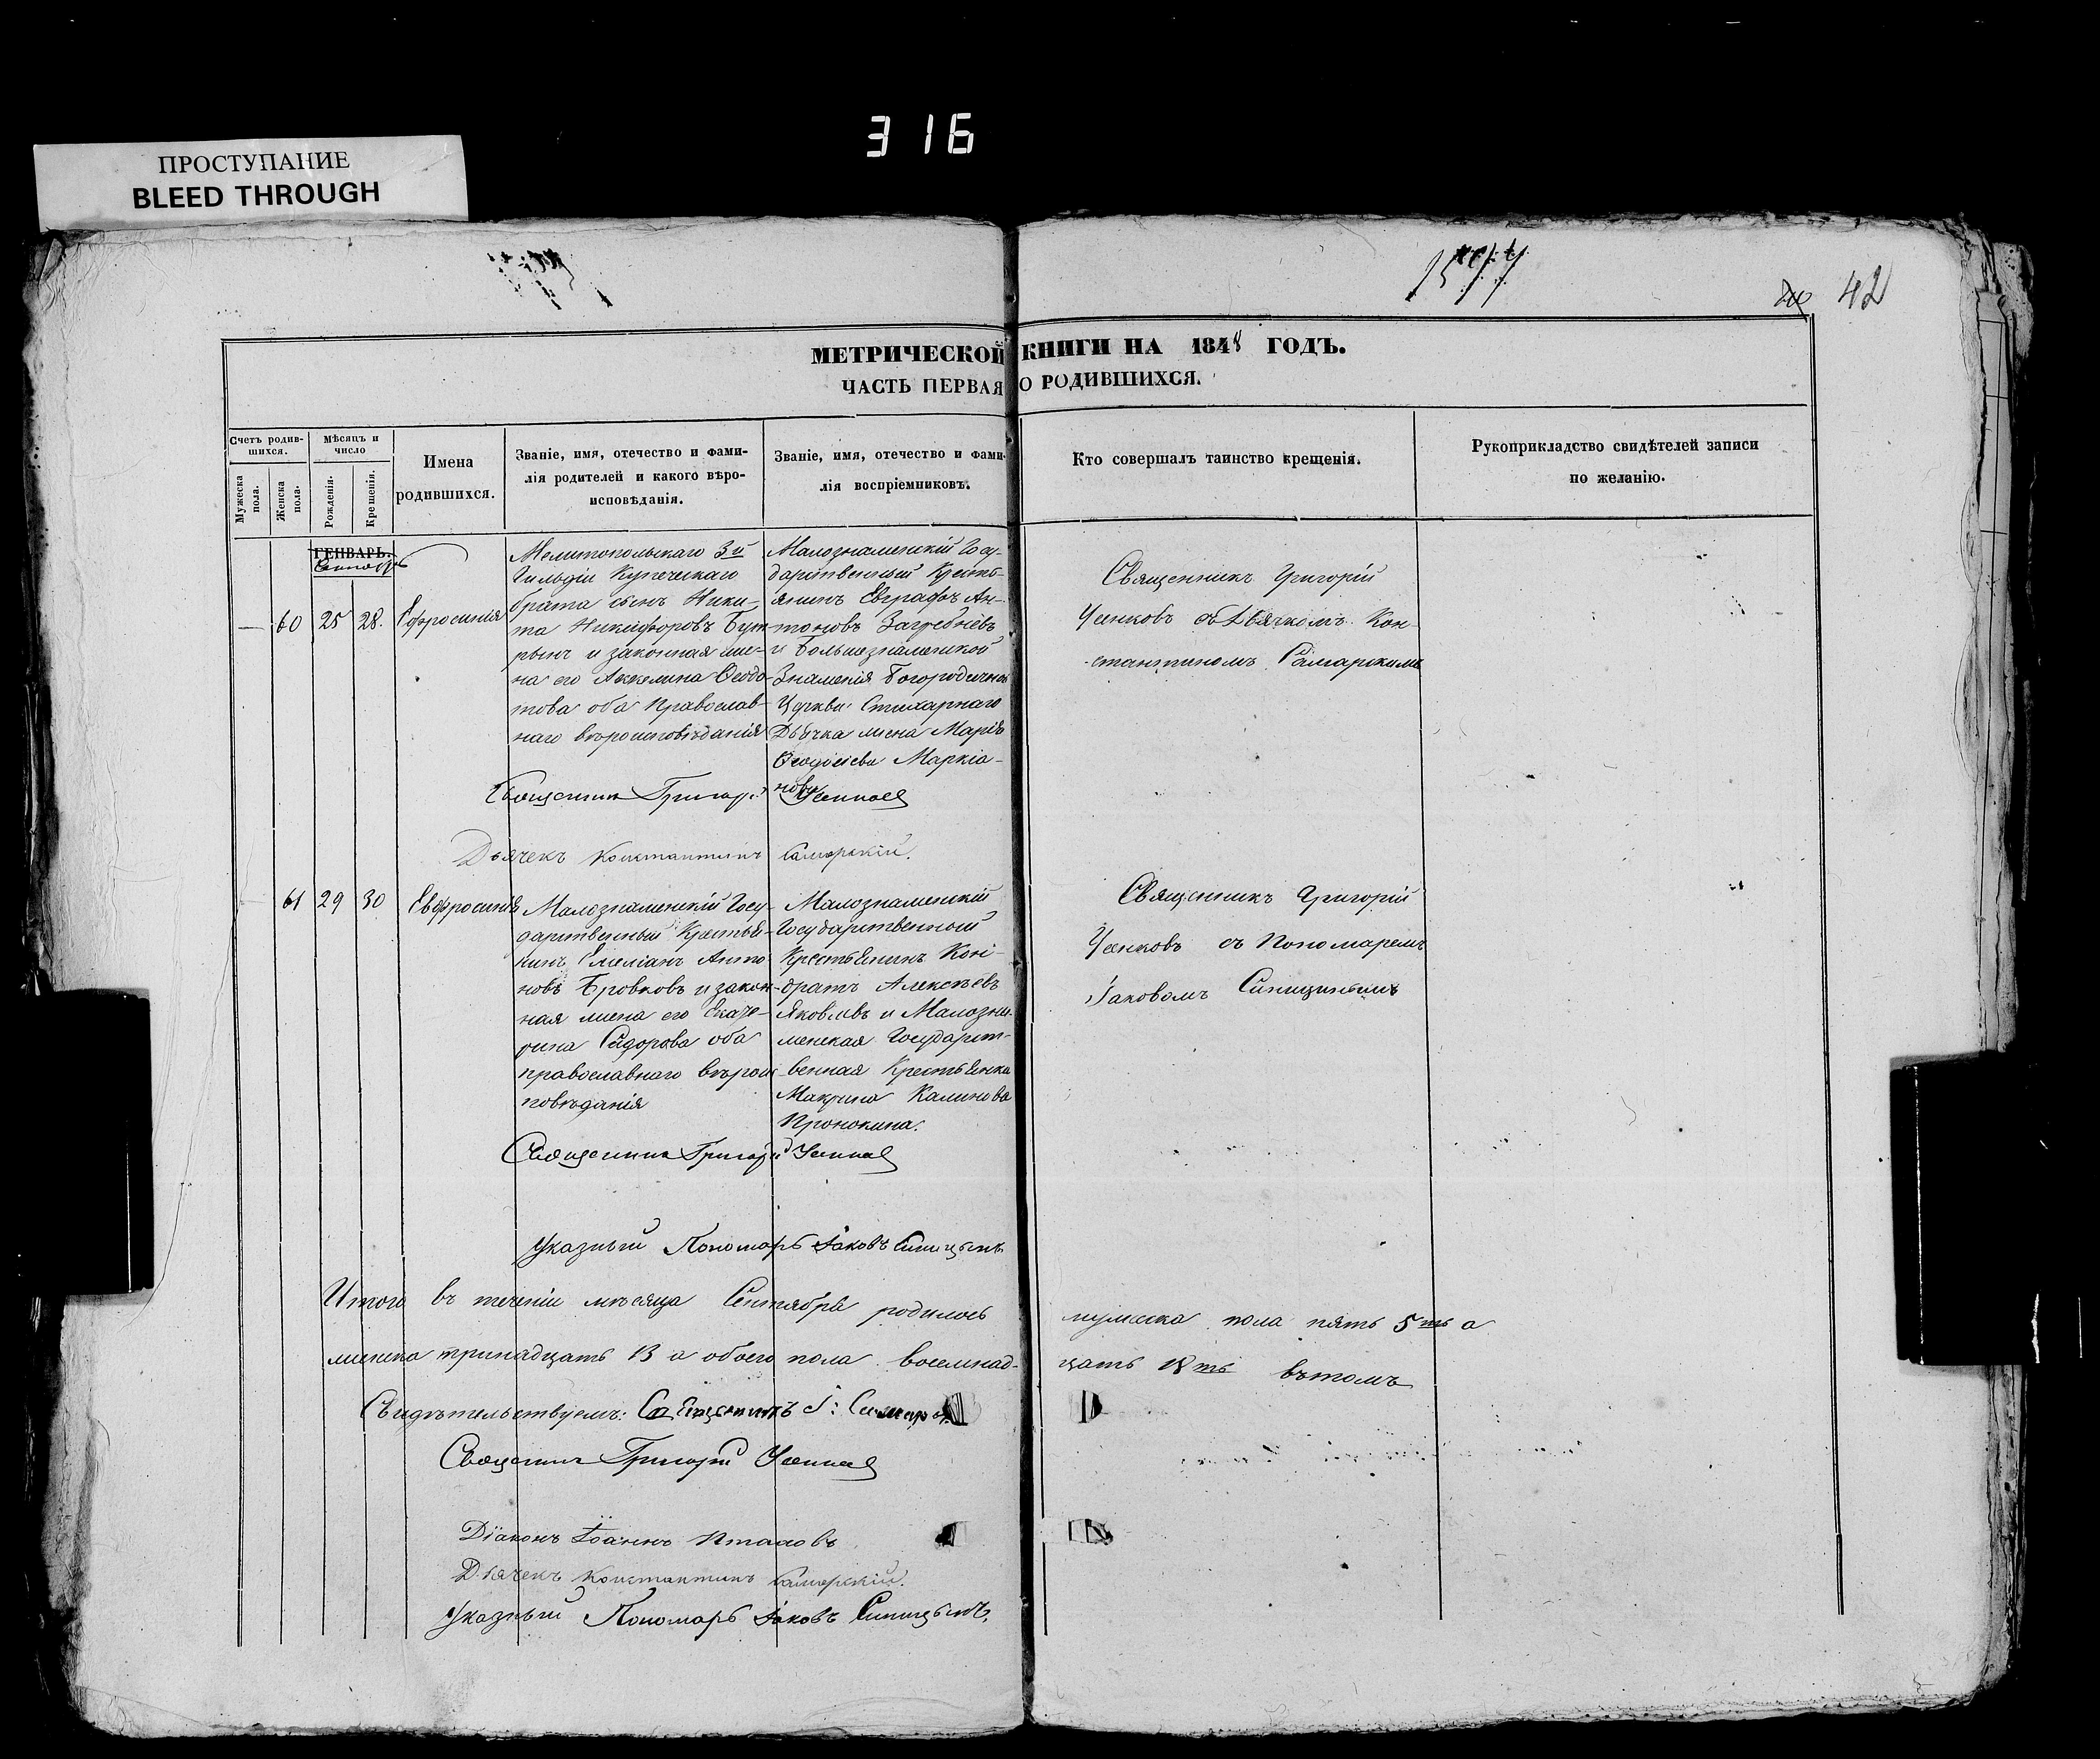 316
ПРОСТУПАНИЕ
BLEED THROUGH
42
МЕТРИЧЕСКОЙ КНИГИ НА 1848 ГОДЪ.
ЧАСТЬ ПЕРВАЯ О РОДИВШИХСЯ.
Счетъ родив-
шихся.
Мужеска пола.
Женска пола.
Мѣсяцъ и
число
Рожденія.
Крещенія.
Имена
родившихся.
Званіе, имя, отечество и фами-
лія родителей и какого вѣро-
исповѣданія.
Званіе, имя, отечество и фами-
лія воспріемниковъ.
Кто совершалъ таинство крещенія.
Рукоприкладство свидѣтелей записи
по желанію.
ГЕНВАРЬ.
Сентябрь
60 25 28. Ефросинія
Мелитопольскаго 3й
Гильдіи Купеческаго
брата сынъ Ники-
та Никифоровъ
и законная же-
на его Акилина Ѳеодо-
това оба Православ-
наго вѣроисповѣданія
Малознаменскій Госу-
дарственный Кресть-
янинъ Евграфъ Ан-
тоновъ Загребнѣвъ
и Большезнаменской
Знаменія Богородичной
Церкви Стихарнаго
Дьячка жена Марія
Ѳеодосіева Маркіа-
нова
Священникъ Григорій
Усенковъ съ Дьячкомъ Кон-
стантиномъ Самарскимъ
Священникъ Григорій Усенковъ
Дьячекъ Константинъ Самарскій.
61 29 30 Евфросинія
Малознаменскій Госу-
дарственный Крестья-
нинъ Емеліанъ Анто-
новъ Бровковъ и закон-
ная жена его Екате-
рина Сидорова оба
православнаго вѣроис-
повѣданія
Малознаменскій
Государственный
Крестьянинъ Кон-
дратъ Алексѣевъ
Яковлвъ и Малозна-
менская Государст-
венная Крестьянка
Макрина Калинова
Пронокина.
Священникъ Григорій
Усенковъ съ Пономаремъ
Іаковомъ Синицинымъ
Священникъ Григорій Усенковъ
Указный Пономарь Іаковъ Синицынъ
Итого въ теченіи мѣсяца Сентября родилось мужеска пола пять 5ть а
женска тринадцать 13 а обоего пола восемнад-цать 18ть въ томъ
Свидѣтельствуемъ: Священникъ
Священникъ Григорій Усенковъ
Діаконъ Іоаннъ
Дьячекъ Константинъ Самарскій.
Указный Пономарь Іаковъ Синицынъ.